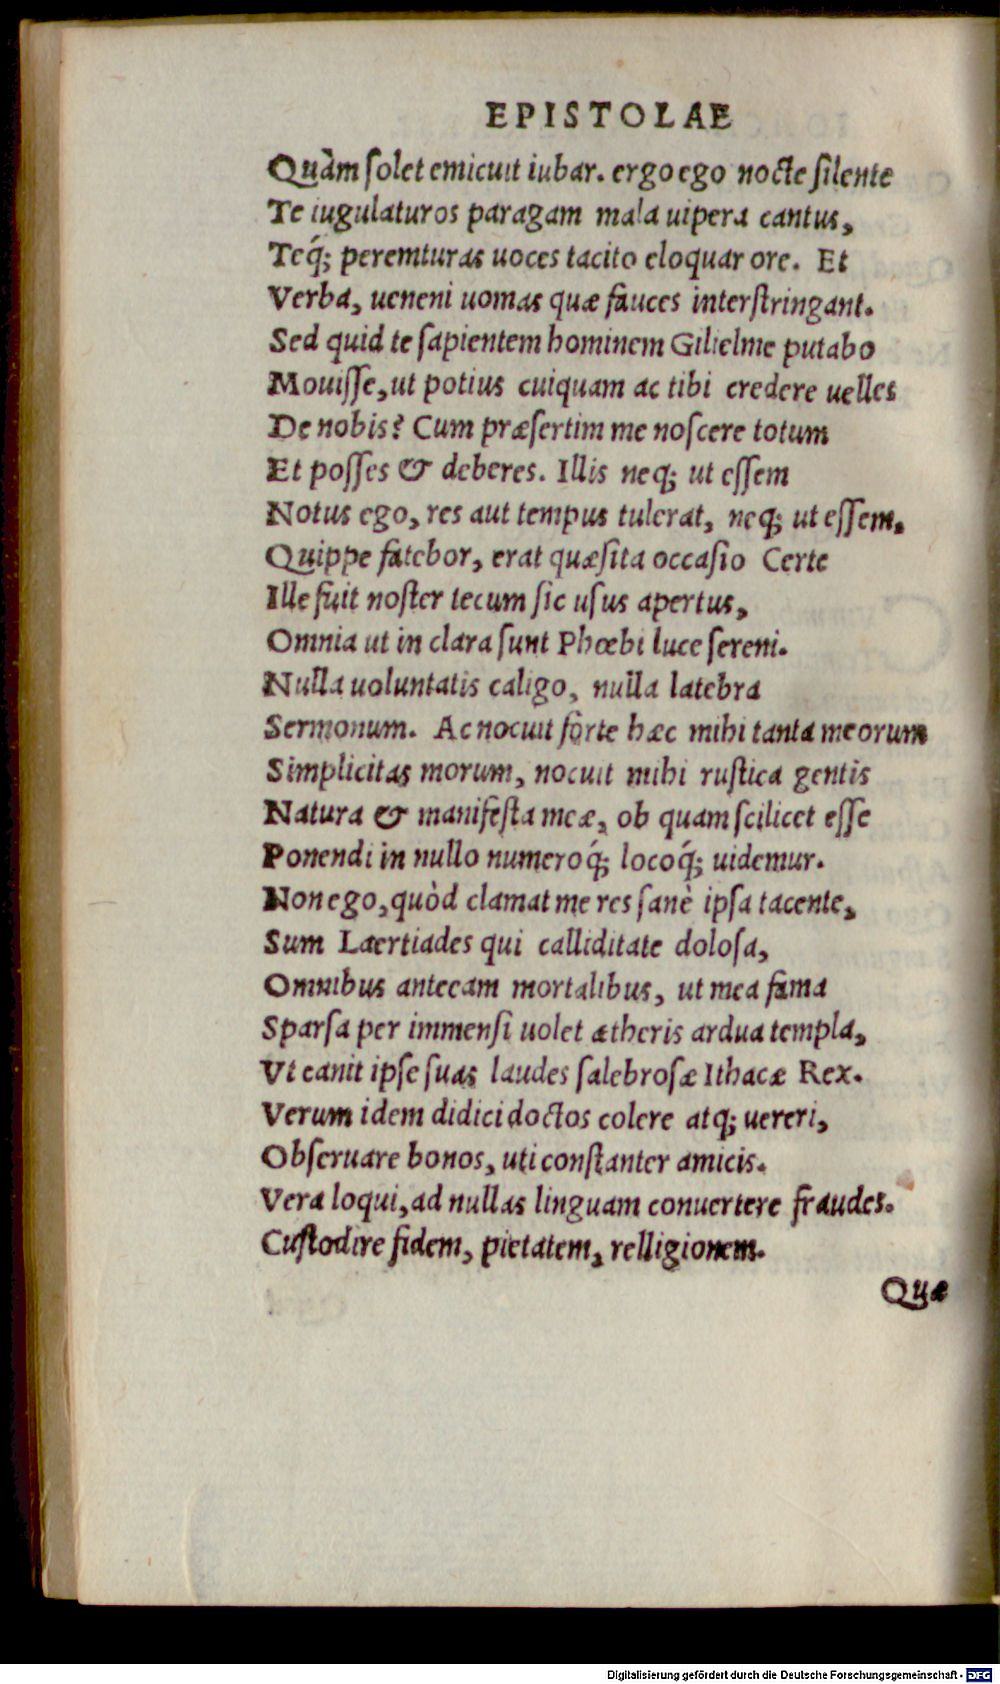 EPISTOLAE
Quàm ſolet emicuit iubar. ergo ego nocte ſilente
Te iugulaturos paragam mala uipera cantus,
Teq́; peremturas uoces tacito eloquar ore. Et
Verba, ueneni uomas quæ fauces interſtringant.
Sed quid te ſapientem hominem Gilielme putabo
Mouiſſe, ut potius cuiquam ac tibi credere uelles
De nobis? Cum præſertim me noſcere totum
Et poſſes & deberes. Illis neq; ut eſſem
Notus ego, res aut tempus tulerat, neq; ut eſſem,
Quippe fatebor, erat quæſita occaſio Certe
Ille fuit noſter tecum ſic uſus apertus,
Omnia ut in clara ſunt Phœbi luce ſereni.
Nulla uoluntatis caligo, nulla latebra
Sermonum. Ac nocuit forte hæc mihi tanta meorum
Simplicitas morum, nocuit mihi ruſtica gentis
Natura & manifeſta meæ, ob quam ſcilicet eſſe
Ponendi in nullo numeroq́; locoq́; uidemur.
Non ego, quòd clamat me res ſanè ipſa tacente,
Sum Laertiades qui calliditate doloſa,
Omnibus anteeam mortalibus, ut mea fama
Sparſa per immenſi uolet ætheris ardua templa,
Vt canit ipſe ſuas laudes ſalebroſæ Ithacæ Rex.
Verum idem didici doctos colere atq; uereri,
Obſeruare bonos, uti conſtanter amicis.
Vera loqui, ad nullas linguam conuertere fraudes.
Cuſtodire fidem, pietatem, relligionem.
Quæ
Digitalisierung gefördert durch die Deutsche Forschungsgemeinschaft - DFG